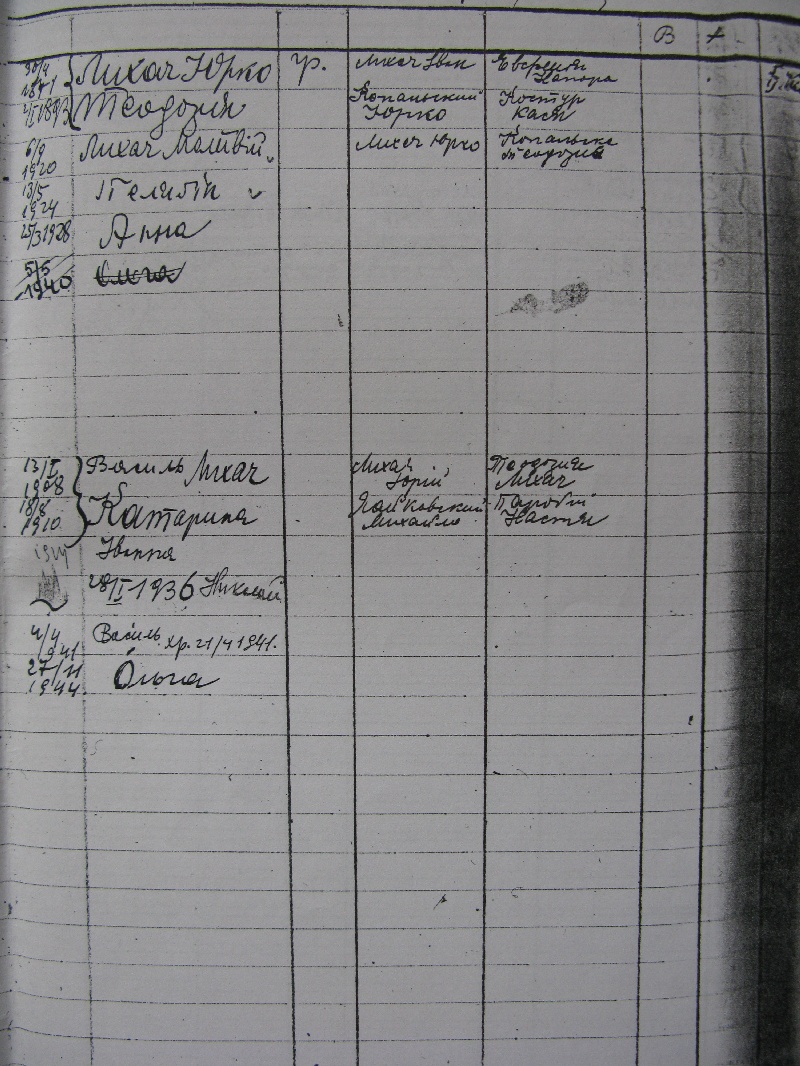 В +
30/4 1871 Лихач Юрко гр. Лихач Іван Євгенія
Сапора
1893 Теодозия Копальский Костур
Юрко Кася
6/9 1920 Лихач Матвій Лихач Юрко Копальска
Теодозия
13/5 1924 Пелагія
25/3 1928 Анна
5/5 1940 Ольга
13/I 1908 Василь Лихач Лихач Теодозия
Юрій Лихач
18/8 1910 Катарина Яцковский Паробій
Михайло Настя
Іванна
28/II 1936 Николай
4/4 941 Василь хр. 21/4 1941.
27/11 1944 Ольга